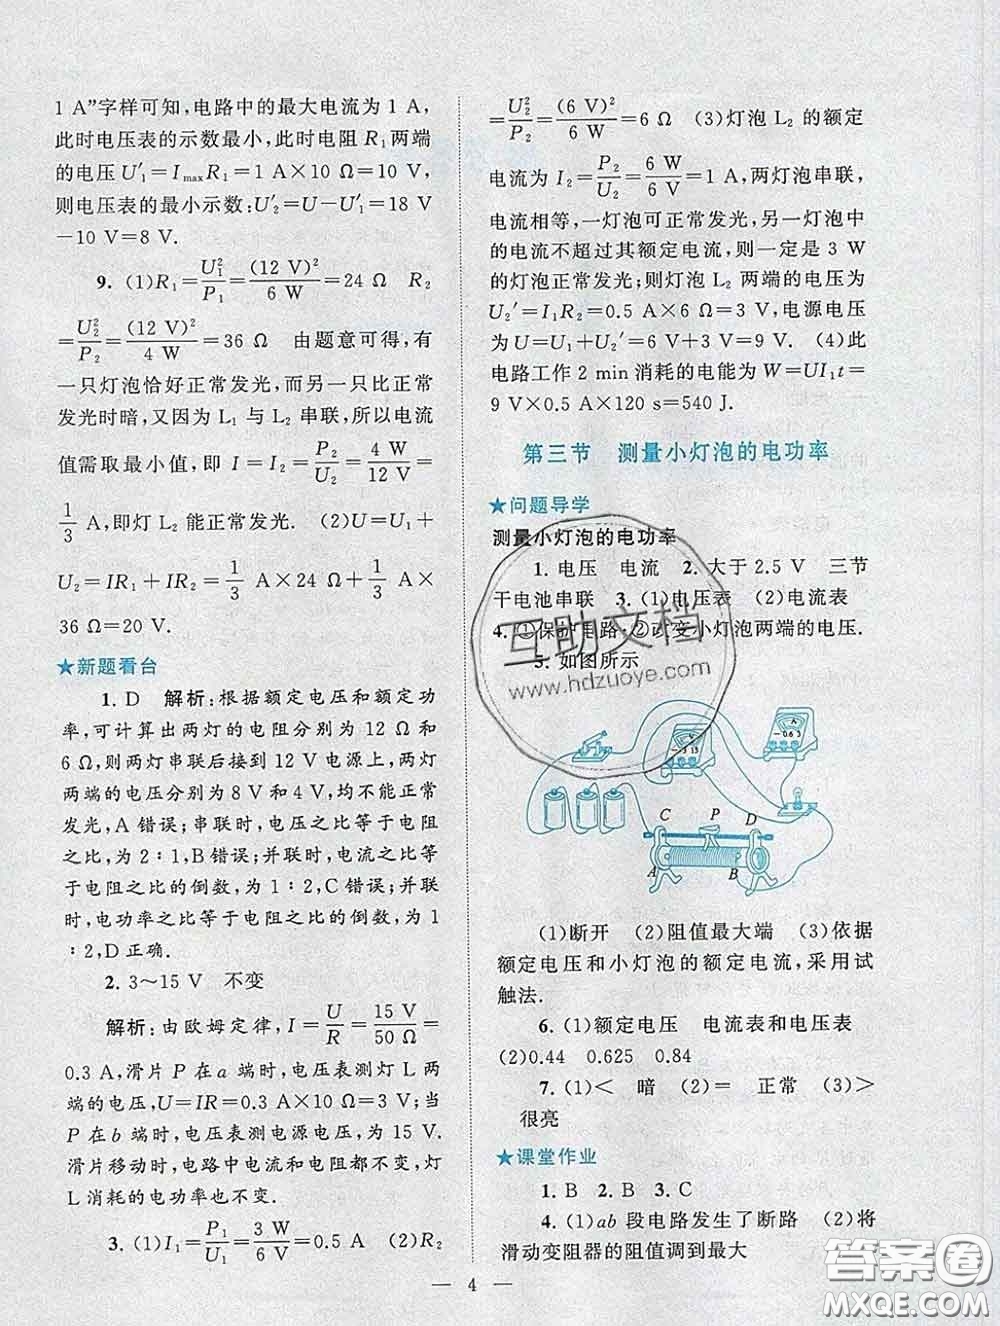 1 A”字样可知,电路中的最大电流为 1 A,
此时电压表的示数最小,此时电阻 R₁两端
的电压 U′₁=I_max R₁=1 A×10 Ω=10 V,
则电压表的最小示数:U′₂=U−U′₁=18 V
−10 V=8 V.
9. (1)R₁=U₁²/P₁=(12 V)²/6 W=24 Ω R₂
=U₂²/P₂=(12 V)²/4 W=36 Ω 由题意可得,有
一只灯泡恰好正常发光,而另一只比正常
发光时暗,又因为 L₁ 与 L₂ 串联,所以电流
值需取最小值,即 I=I₂=P₂/U₂=4 W/12 V=
1/3 A,即灯 L₂ 能正常发光. (2)U=U₁+
U₂=IR₁+IR₂=1/3 A×24 Ω+1/3 A×
36 Ω=20 V.
★新题看台
1. D 解析:根据额定电压和额定功
率,可计算出两灯的电阻分别为 12 Ω 和
6 Ω,则两灯串联后接到 12 V 电源上,两灯
两端的电压分别为 8 V 和 4 V,均不能正常
发光,A 错误;串联时,电压之比等于电阻
之比,为 2∶1,B 错误;并联时,电流之比等
于电阻之比的倒数,为 1∶2,C 错误;并联
时,电功率之比等于电阻之比的倒数,为 1
∶2,D 正确.
2. 3~15 V 不变
解析:由欧姆定律,I=U/R=15 V/50 Ω=
0.3 A,滑片 P 在 a 端时,电压表测灯 L 两
端的电压,U=IR=0.3 A×10 Ω=3 V;当
P 在 b 端时,电压表测电源电压,为 15 V.
滑片移动时,电路中电流和电阻都不变,灯
L 消耗的电功率也不变.
3. (1)I₁=P₁/U₁=3 W/6 V=0.5 A (2)R₂
=U₂²/P₂=(6 V)²/6 W=6 Ω (3)灯泡 L₂ 的额定
电流为 I₂=P₂/U₂=6 W/6 V=1 A,两灯泡串联,
电流相等,一灯泡可正常发光,另一灯泡中
的电流不超过其额定电流,则一定是 3 W
的灯泡正常发光;则灯泡 L₂ 两端的电压为
U₂′=I₁R₂=0.5 A×6 Ω=3 V,电源电压
为 U=U₁+U₂′=6 V+3 V=9 V. (4)此
电路工作 2 min 消耗的电能为 W=UI₁t=
9 V×0.5 A×120 s=540 J.
第三节 测量小灯泡的电功率
★问题导学
测量小灯泡的电功率
1. 电压 电流 2. 大于 2.5 V 三节
干电池串联 3. (1)电压表 (2)电流表
4. ①保护电路;②改变小灯泡两端的电压.
5. 如图所示
互助文档
www.hdzuoye.com
A
−0.6 3
−3 15
C P D
A B
(1)断开 (2)阻值最大端 (3)依据
额定电压和小灯泡的额定电流,采用试
触法.
6. (1)额定电压 电流表和电压表
(2)0.44 0.625 0.84
7. (1)< 暗 (2)= 正常 (3)>
很亮
★课堂作业
1. B 2. B 3. C
4. (1)ab 段电路发生了断路 (2)将
滑动变阻器的阻值调到最大
答案圈
MXQE.COM
— 4 —